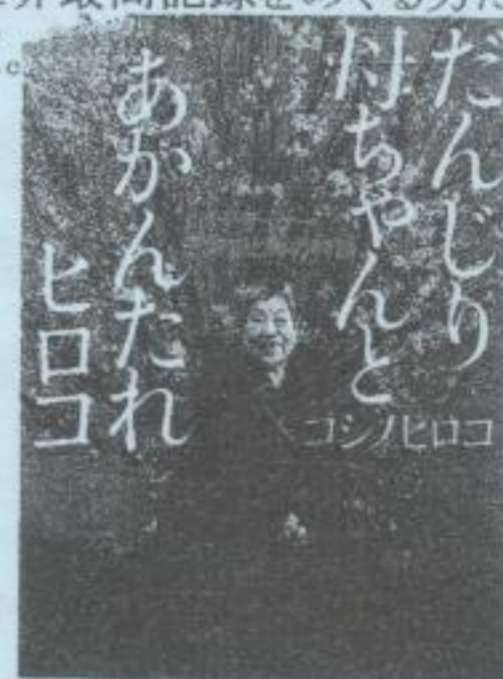 界最高記録をめぐる男た
だんじり
母ちゃんと
あかんたれ
ヒロコ
コシノヒロコ